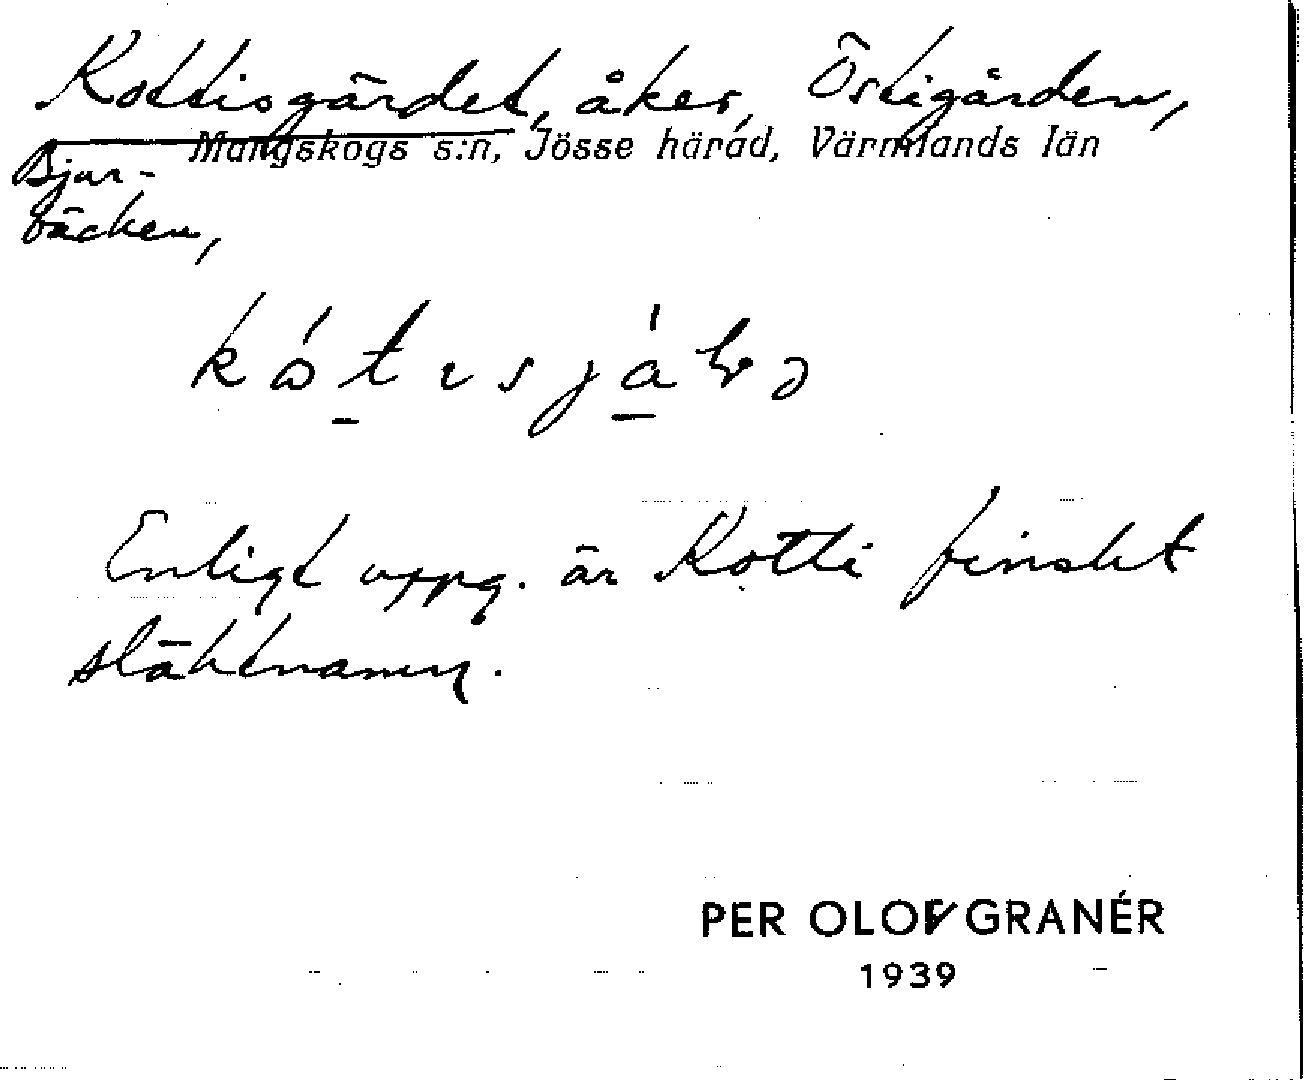 Kottisgärdet, åker, Östigården,
Mangskogs s:n, Jösse härad, Värmlands län
Bjur-
bäcken,
Enligt uppg. är Kotti finskt
släktnamn.
PER OLOF GRANÉR
1939